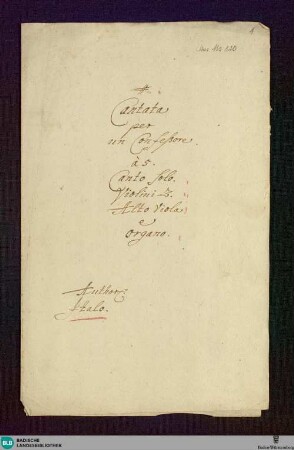 Mus. Hs. 620
A.
Cantata
per
un Confessore
à 5.
Canto Solo.
Violini 2.
Alto Viola
e
Organo.
Author
Italo.
BLB BADISCHE
LANDESBIBLIOTHEK
Baden-Württemberg